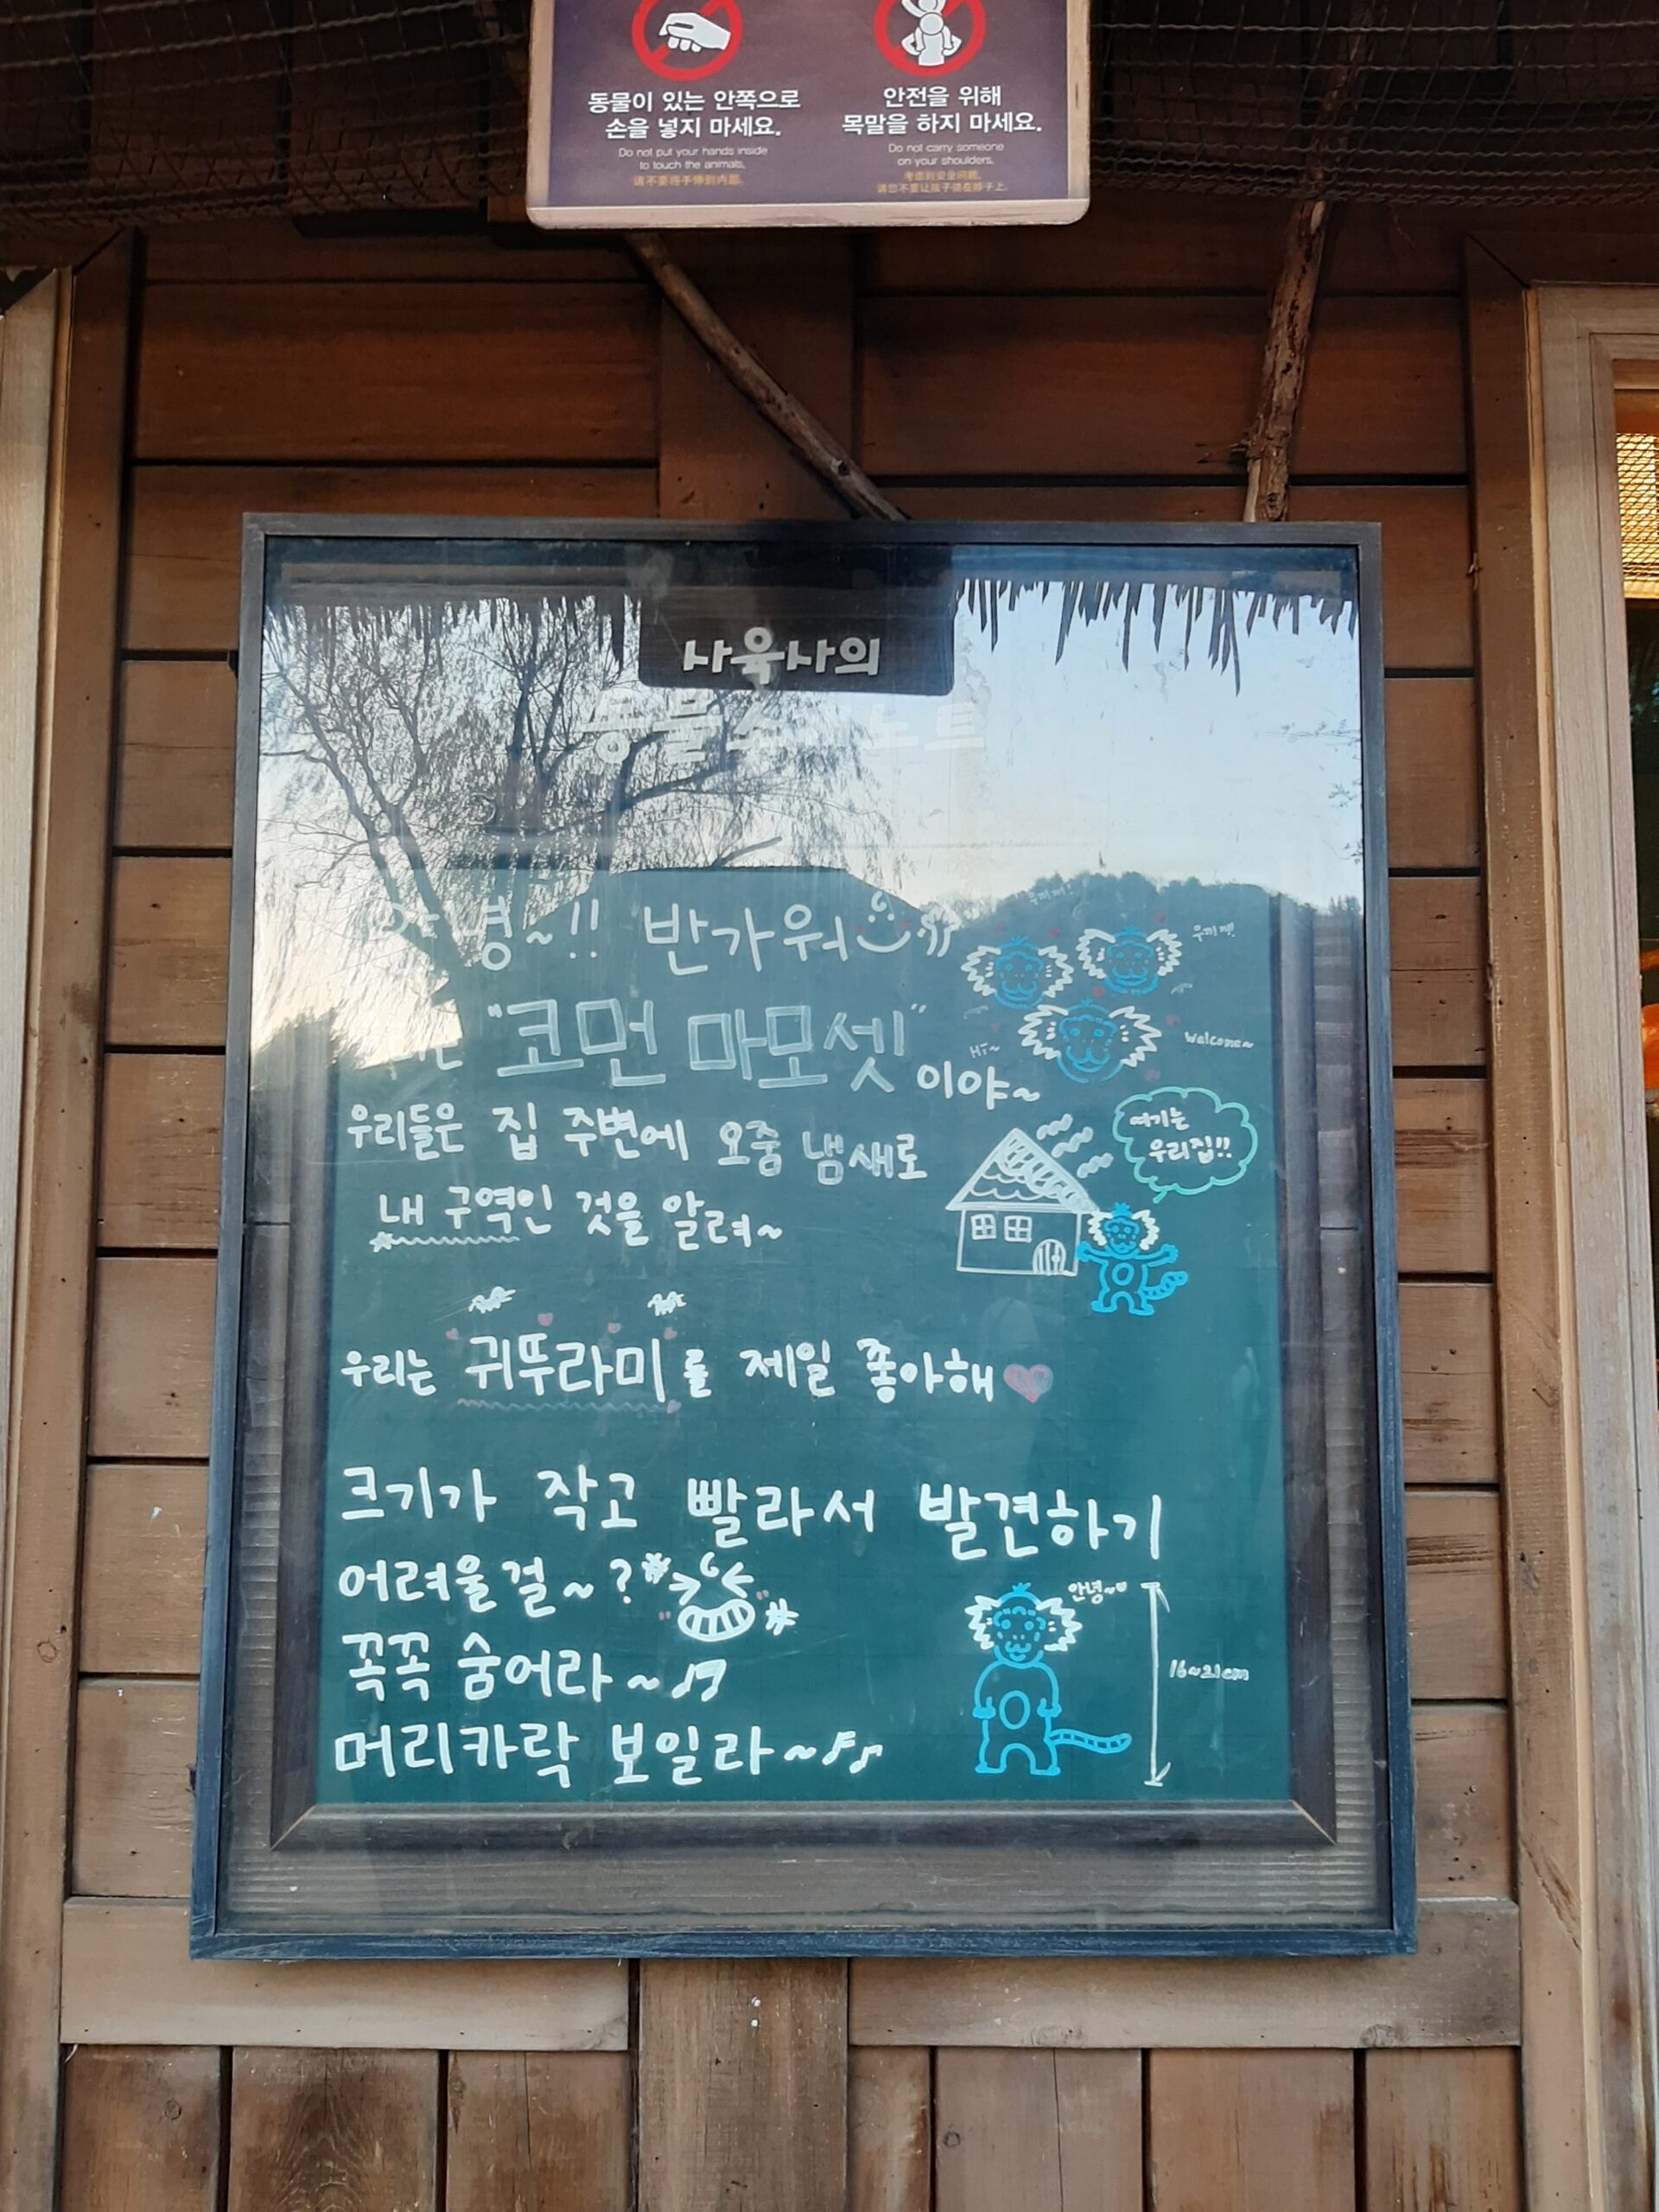 동물이 있는 안쪽으로
손을 넣지 마세요.
Do not put your hands inside
to touch the animals.
请不要将手伸到内部.
안전을 위해
목말을 하지 마세요.
Do not carry someone
on your shoulders.
考虑到安全问题,
请您不要让孩子骑在脖子上.
사육사의
동물 노트
안녕~!! 반가워
우끼끼!
"코먼 마모셋" 이야~
Hi~
Welcome~
우리들은 집 주변에 오줌 냄새로
내 구역인 것을 알려~
여기는
우리집!!
우리는 귀뚜라미를 제일 좋아해
크기가 작고 빨라서 발견하기
어려울걸~?
꼭꼭 숨어라~
머리카락 보일라~
안녕~
16~21cm